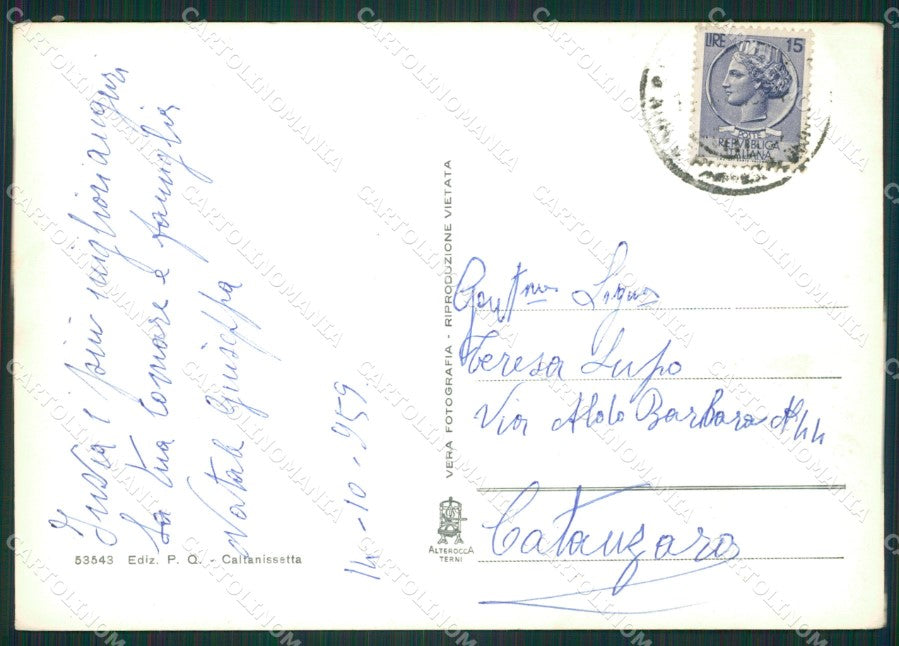 Invia i più migliori auguri
La tua comare e famiglia
Natale Giuseppa
14-10-959
53543 Ediz. P. Q. - Caltanissetta
VERA FOTOGRAFIA - RIPRODUZIONE VIETATA
ALTEROCCA
TERNI
LIRE 15
POSTE
REPVBBLICA
ITALIANA
Gent.ma Sig.ra
Teresa Lupo
Via Aldo Barbaro
Catanzaro
CARTOLINOMANIA